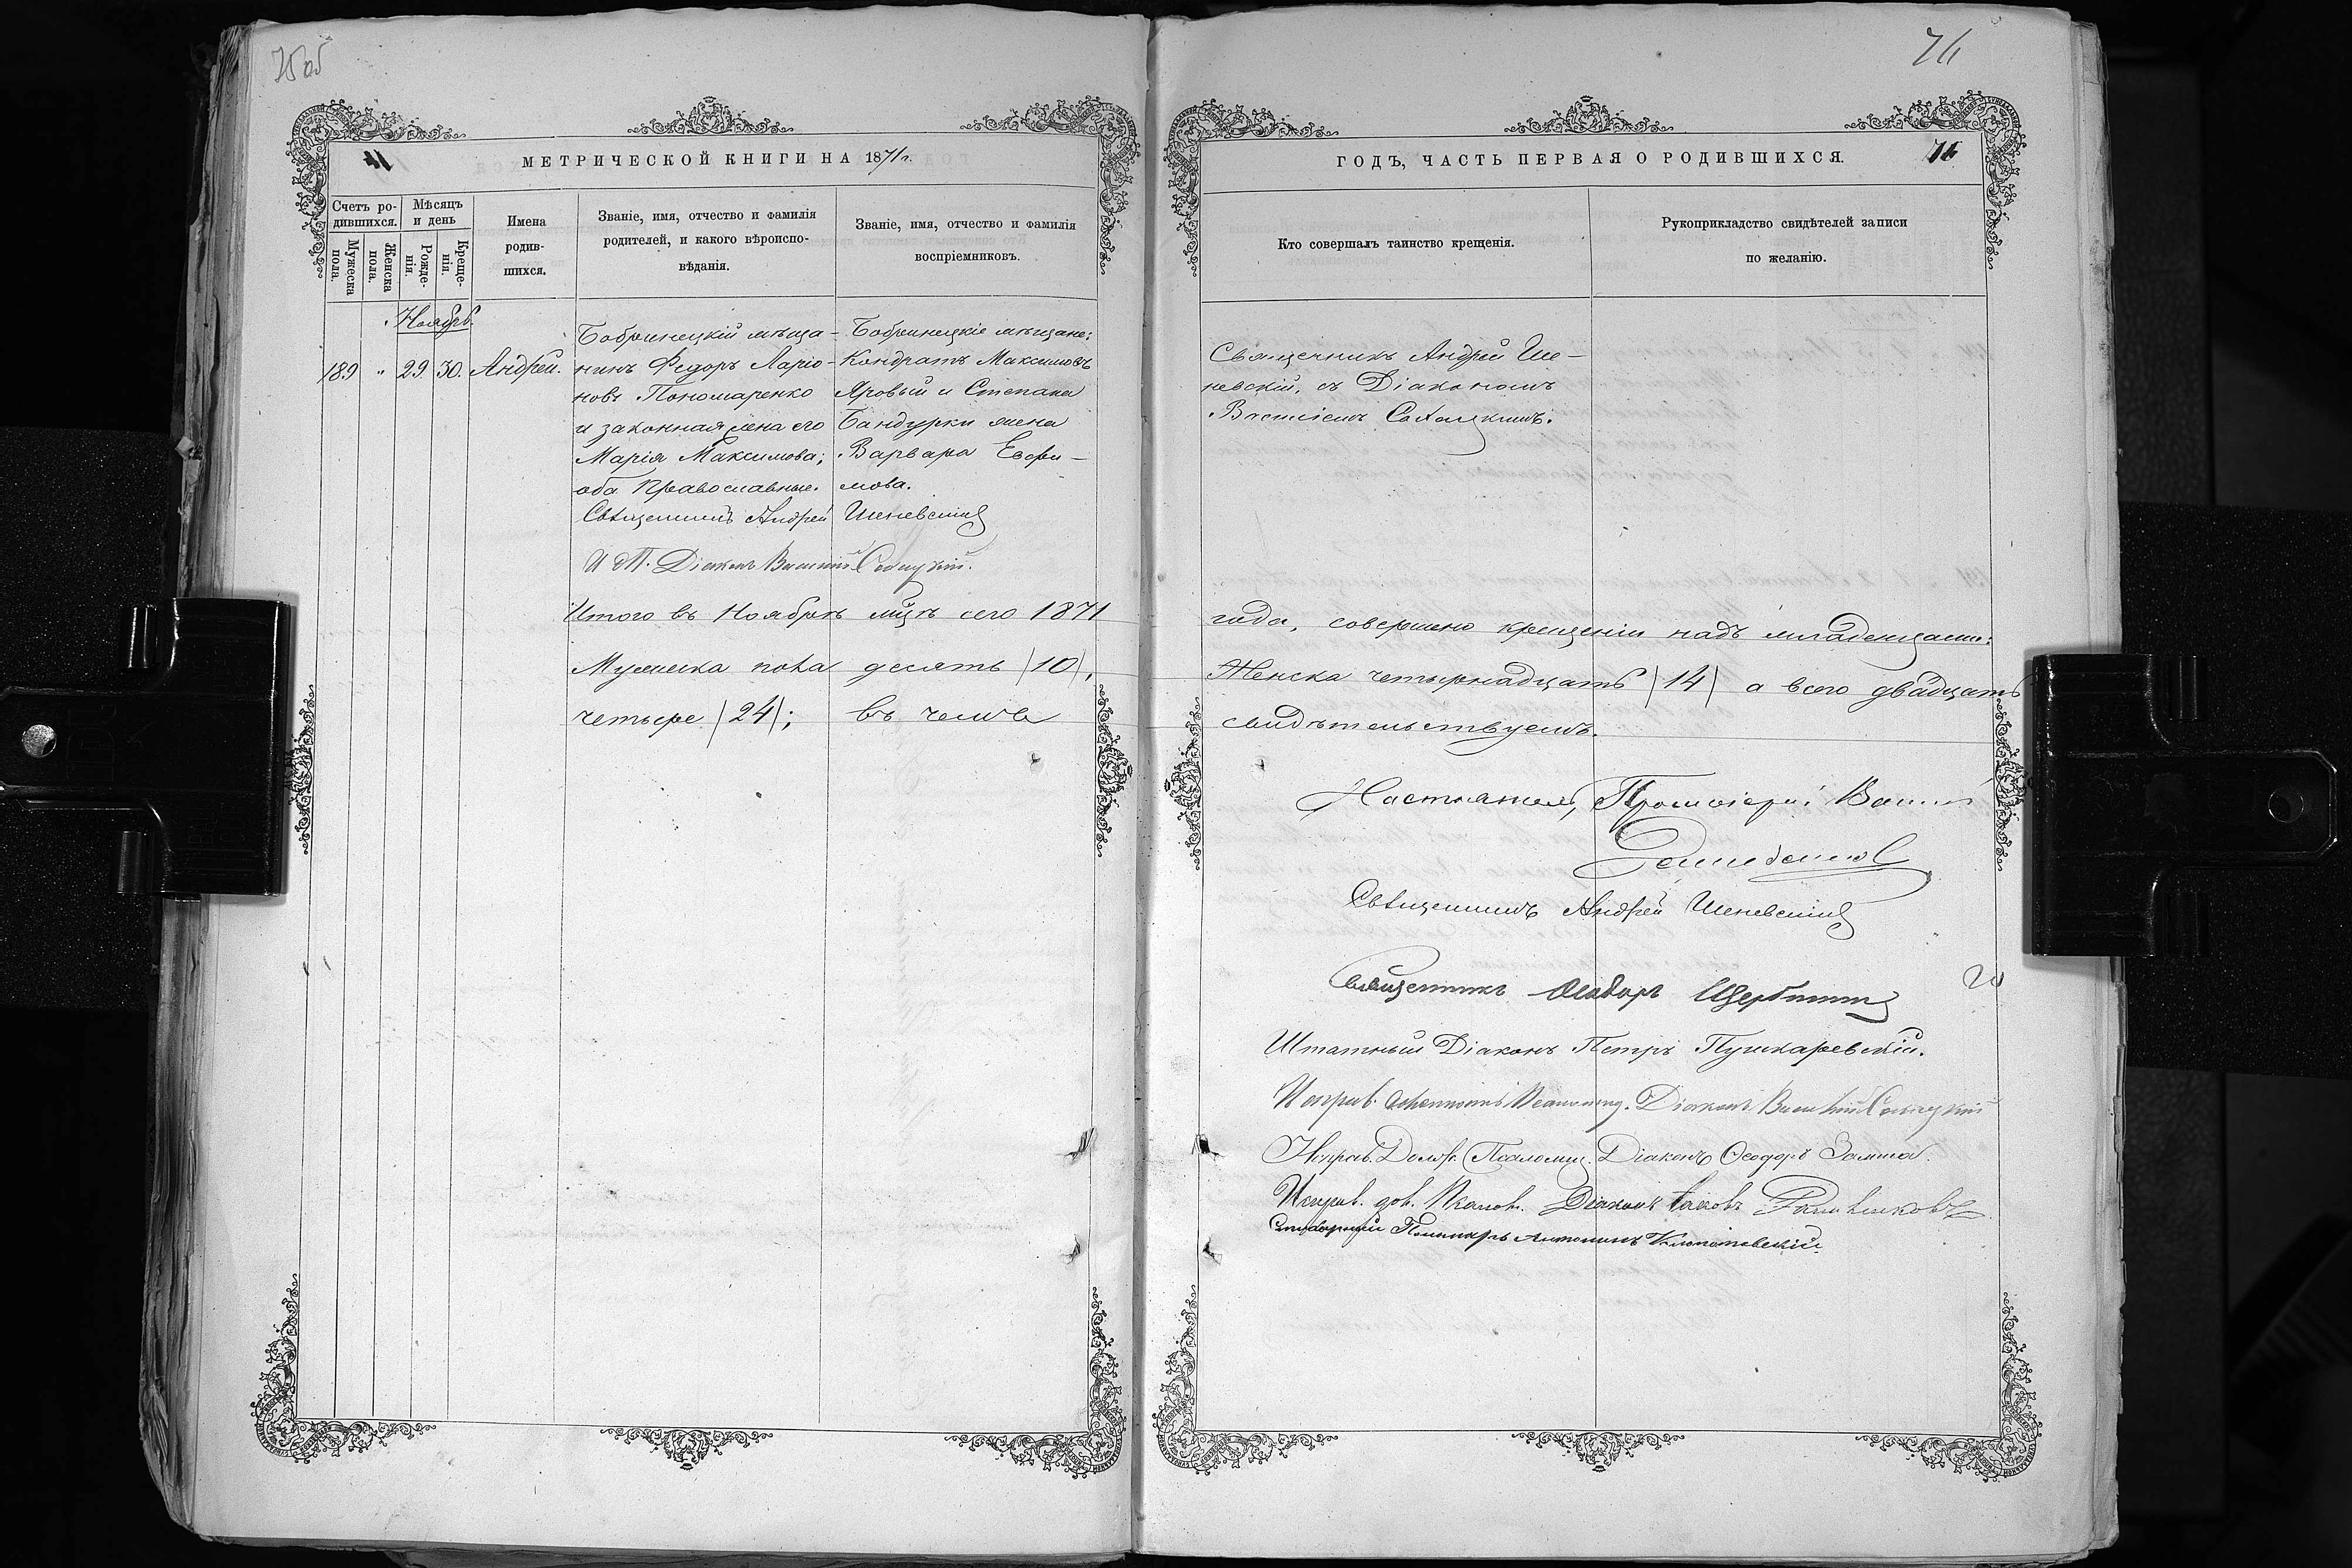 75об
МЕТРИЧЕСКОЙ КНИГИ НА 1871 г.
Счетъ ро-
дившихся.
Мужеска
пола.
Женска
пола.
Мѣсяцъ
и день
Рожде-
нія.
Креще-
нія.
Имена
родив-
шихся.
Званіе, имя, отчество и фамилія
родителей, и какого вѣроиспо-
вѣданія.
Званіе, имя, отчество и фамилія
воспріемниковъ.
Ноябрь.
189 " 29. 30. Андрей.
Бобринецкій мѣща-
нинъ Федоръ Ларіо-
новъ Пономаренко
и законная жена его
Марія Максимова;
оба Православные.
Бобринецкіе мѣщане:
Кондратъ Максимовъ
Яровый и Степана
Бандурки жена
Варвара Евфи-
мова.
Священникъ Андрей Шеневскій
И. П. Діаконъ Василій
Итого въ Ноябрѣ мцѣ сего 1871
Мужеска пола десять (10),
четыре (24); въ чемъ
76
ГОДЪ, ЧАСТЬ ПЕРВАЯ О РОДИВШИХСЯ.
76
Кто совершалъ таинство крещенія.
Рукоприкладство свидѣтелей записи
по желанію.
Священникъ Андрей Ше-
невскій, съ Діакономъ
Василіемъ
года, совершено крещенія надъ младенцами:
Женска четырнадцать (14) а всего двадцать
свидѣтельствуемъ.
Настоятель, Протоіерей
Священникъ Андрей Шеневскій
Священникъ Щербина
Штатный Діаконъ Петръ Пушкаревскій.
Исправ. Діаконъ Василій
Исправ. Долж. Псаломщ. Діаконъ Ѳеодоръ
Исправ. дол. Псалом. Діаконъ Іаковъ
Пономарь Антонинъ Клопотовскій.